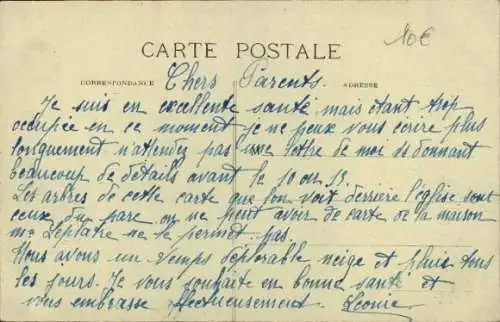 10€
CARTE POSTALE
CORRESPONDANCE
ADRESSE
Chers Parents.
Je suis en excellente santé mais étant trop
occupée en ce moment je ne peux vous écrire plus
longuement n'attendez pas une lettre de moi donnant
beaucoup de détails avant le 10 ou 13
Les arbres de cette carte que l'on voit derrière l'église sont
ceux du parc on ne peut avoir de carte de la maison
Mme Leplatre ne le permet pas.
Nous avons un temps déplorable neige et pluie tous
les jours. Je vous souhaite en bonne santé et
vous embrasse affectueusement. Léonie